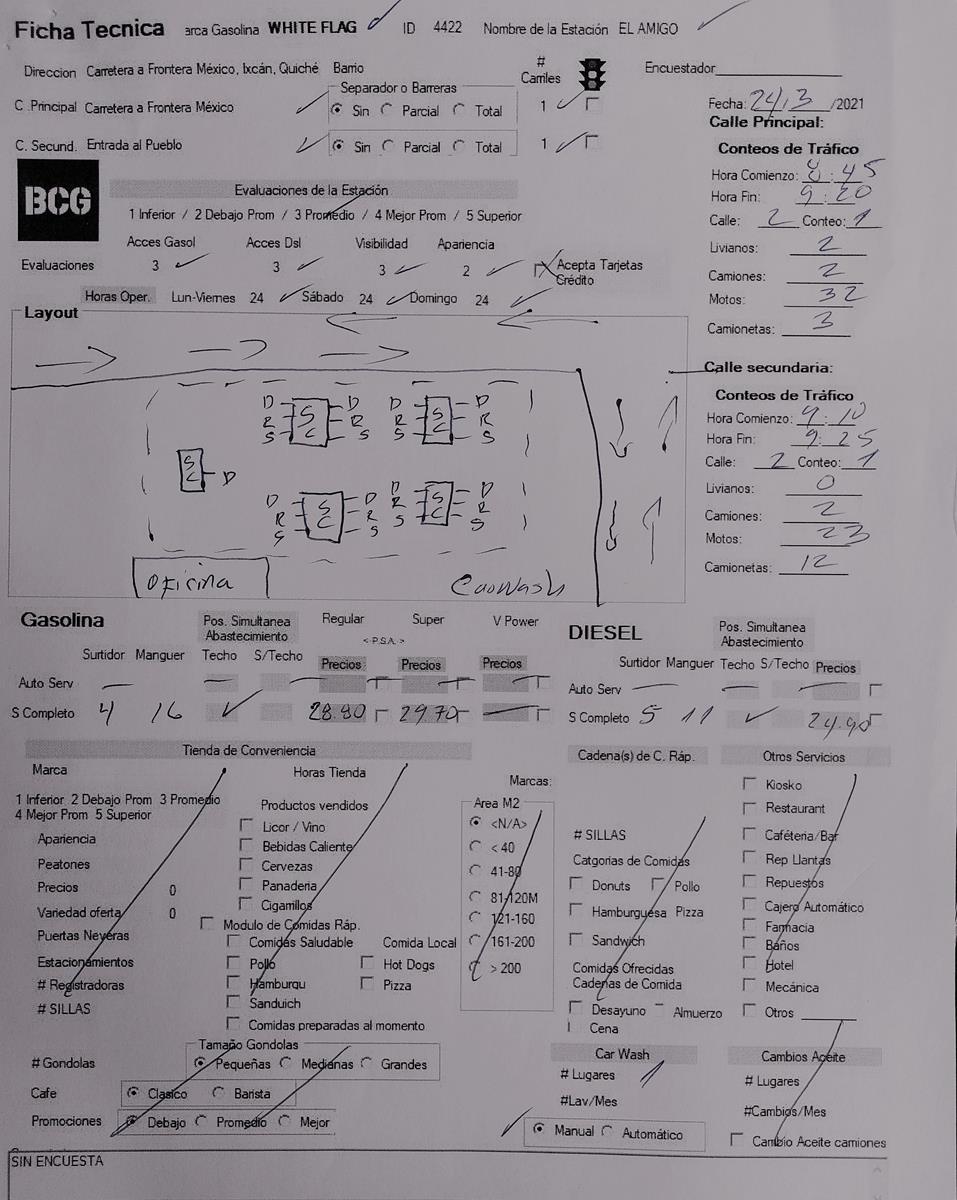 Ficha Tecnica arca Gasolina WHITE FLAG ID 4422 Nombre de la Estación EL AMIGO
Direccion Carretera a Frontera México, Ixcán, Quiché Barrio
# Carriles
Encuestador
Separador o Barreras
C. Principal Carretera a Frontera México Sin Parcial Total 1
Fecha: 24/3/2021
Calle Principal:
C. Secund. Entrada al Pueblo Sin Parcial Total 1
Conteos de Tráfico
BCG
Hora Comienzo: 8:45
Evaluaciones de la Estación
Hora Fin: 9:20
1 Inferior / 2 Debajo Prom / 3 Promedio / 4 Mejor Prom / 5 Superior
Calle: 2 Conteo: 1
Acces Gasol Acces Dsl Visibilidad Apariencia
Livianos: 2
Evaluaciones 3 3 3 2 Acepta Tarjetas Crédito
Camiones: 2
Horas Oper. Lun-Viernes 24 Sábado 24 Domingo 24
Motos: 32
Layout
Camionetas: 3
Calle secundaria:
Conteos de Tráfico
Hora Comienzo: 9:10
Hora Fin: 9:25
Calle: 2 Conteo: 1
Livianos: 0
Camiones: 2
Motos: 23
Camionetas: 12
D D D D
R SC R R SC R
S S S S
SC D
D D D D
R SC R R SC R
S S S S
Oficina
Carwash
Gasolina
Pos. Simultanea Abastecimiento Regular Super V Power
<-P.S.A. >
Surtidor Manguer Techo S/Techo Precios Precios Precios
Auto Serv
S Completo 4 16 28.90 29.70
DIESEL
Pos. Simultanea Abastecimiento
Surtidor Manguer Techo S/Techo Precios
Auto Serv
S Completo 5 11 24.90
Tienda de Conveniencia
Marca Horas Tienda
1 Inferior 2 Debajo Prom 3 Promedio
4 Mejor Prom 5 Superior
Apariencia
Peatones
Precios 0
Variedad oferta 0
Puertas Neveras
Estacionamientos
# Registradoras
# SILLAS
Productos vendidos
Licor / Vino
Bebidas Caliente
Cervezas
Panaderia
Cigarrillos
Modulo de Comidas Ráp.
Comidas Saludable Comida Local
Pollo Hot Dogs
Hamburqu Pizza
Sanduich
Comidas preparadas al momento
Marcas:
Area M2
<N/A>
< 40
41-80
81-120M
121-160
161-200
> 200
Cadena(s) de C. Ráp.
# SILLAS
Catgorias de Comidas
Donuts Pollo
Hamburguesa Pizza
Sandwich
Comidas Ofrecidas
Caderias de Comida
Desayuno Almuerzo
Cena
Otros Servicios
Kiosko
Restaurant
Caféteria/Bar
Rep Llantas
Repuestos
Cajero Automático
Farmacia
Baños
Hotel
Mecánica
Otros
Tamaño Gondolas
# Gondolas Pequeñas Medianas Grandes
Cafe Clasico Barista
Promociones Debajo Promedio Mejor
Car Wash
# Lugares 1
#Lav/Mes
Manual Automático
Cambios Aceite
# Lugares
#Cambios/Mes
Cambio Aceite camiones
SIN ENCUESTA